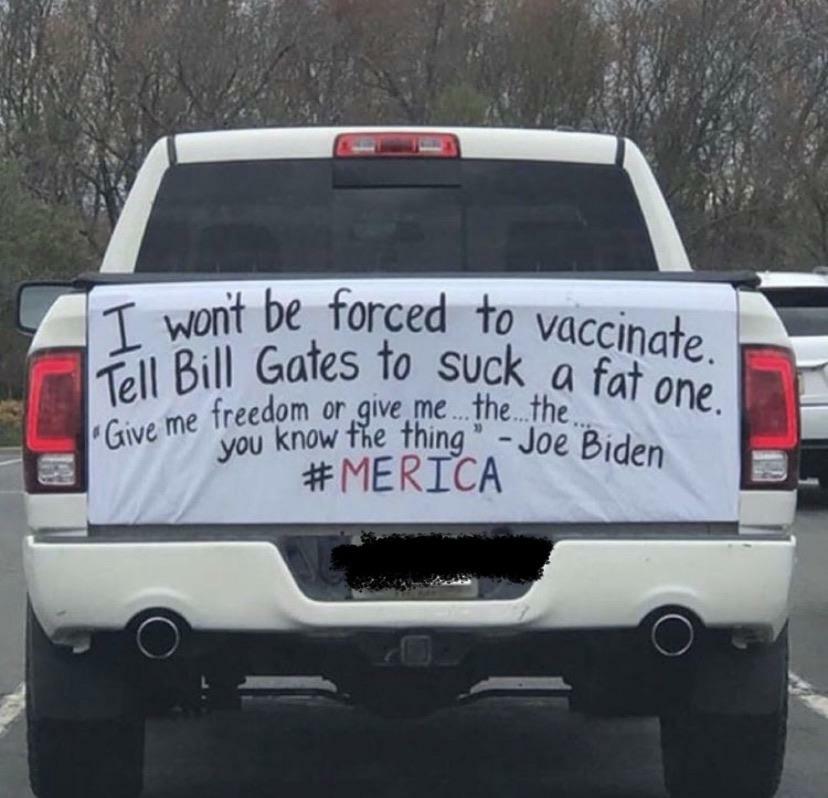 I won't be forced to vaccinate.
Tell Bill Gates to suck a fat one.
"Give me freedom or give me...the...the...
you know the thing" - Joe Biden
#MERICA